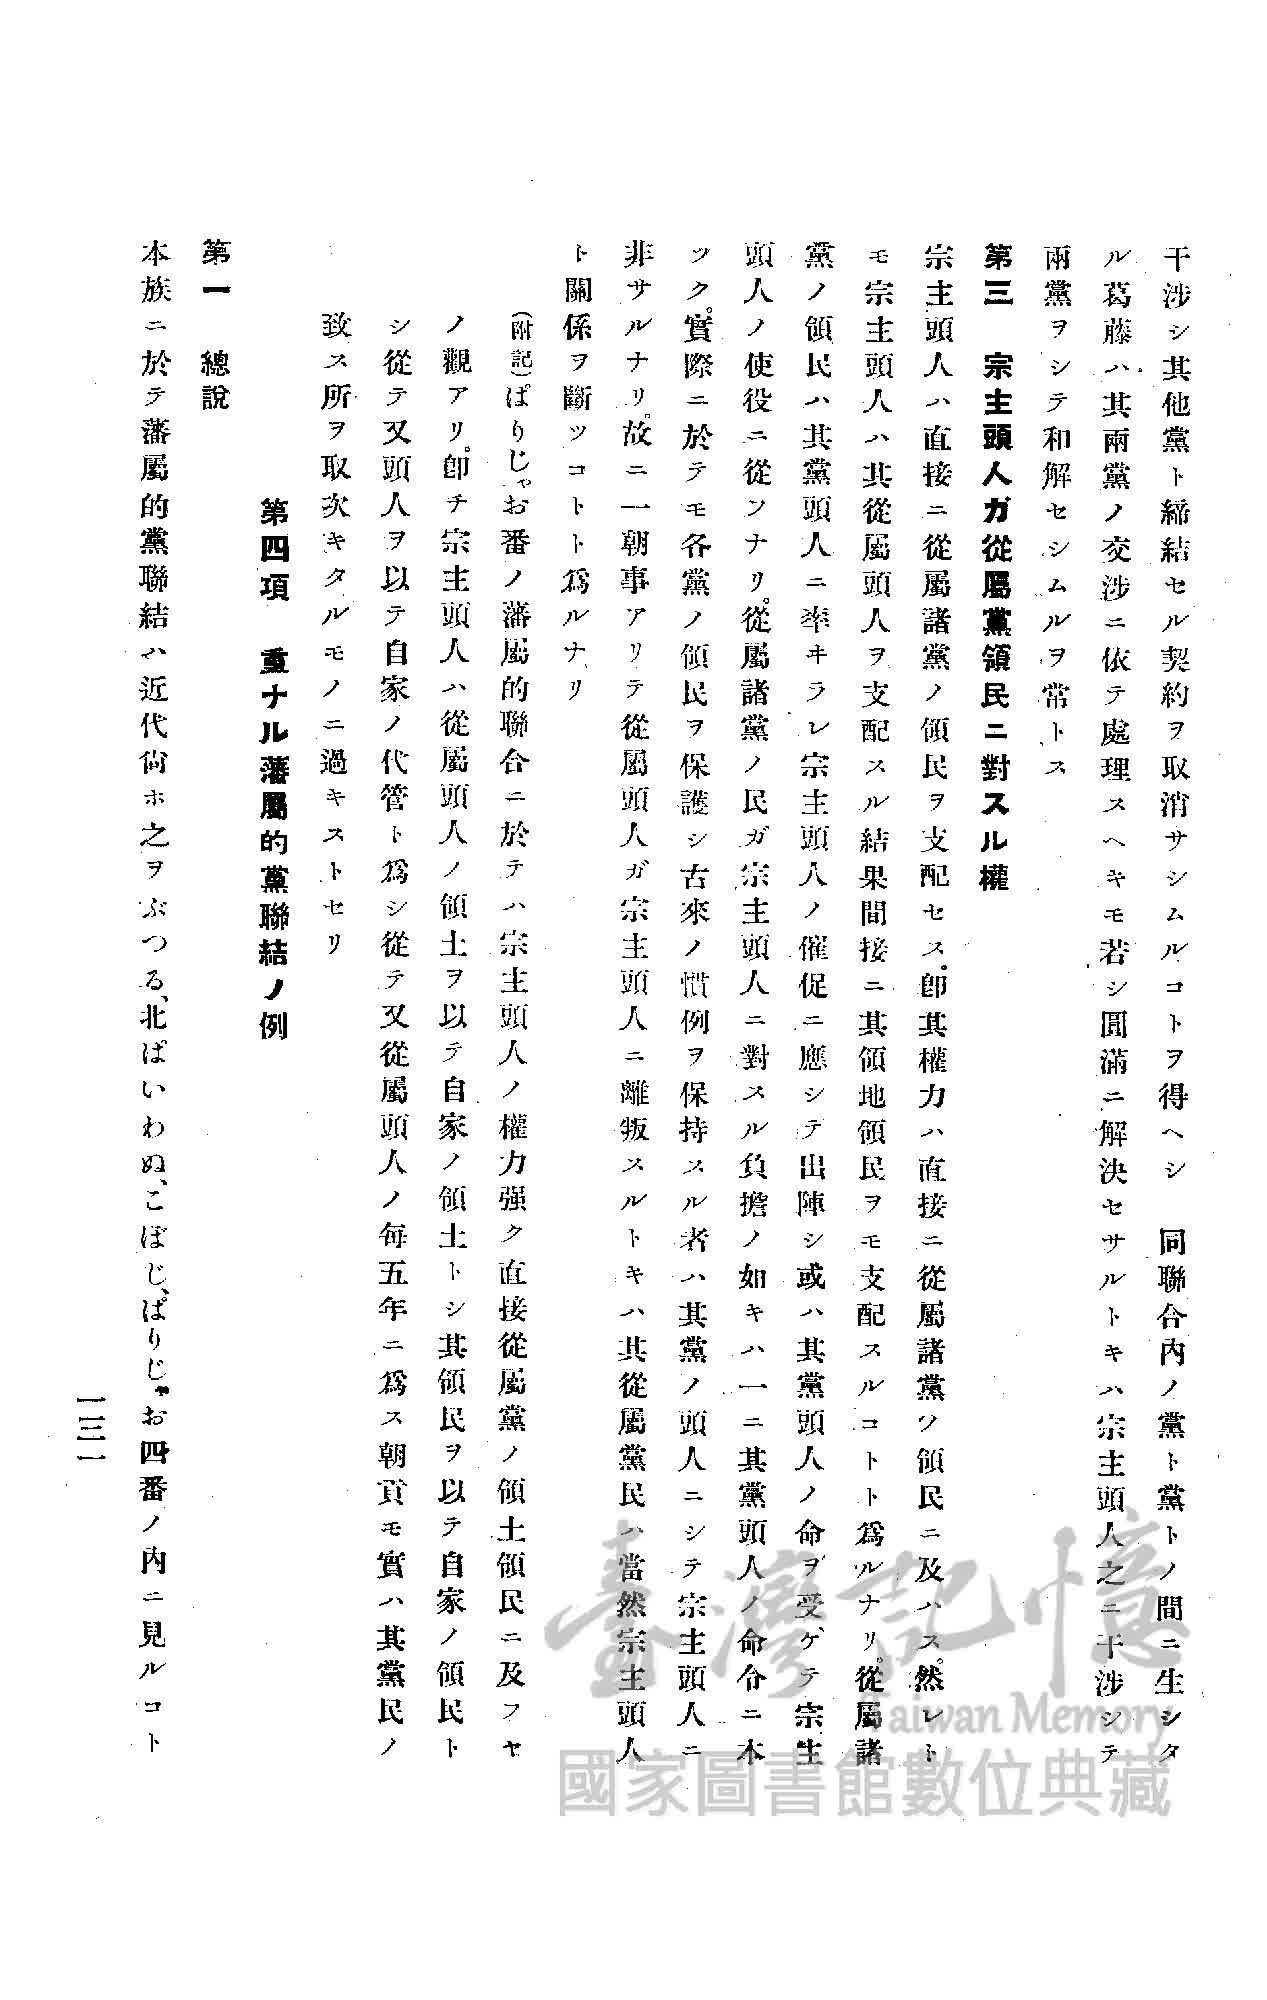 干涉シ其他黨ト締結セル契約ヲ取消サシムルコトヲ得ヘシ　同聯合內ノ黨ト黨トノ間ニ生シタ
ル葛藤ハ其兩黨ノ交涉ニ依テ處理スヘキモ若シ圓滿ニ解決セサルトキハ宗主頭人之ニ干涉シテ
兩黨ヲシテ和解セシムルヲ常トス
第三　宗主頭人ガ從屬黨領民ニ對スル權
宗主頭人ハ直接ニ從屬諸黨ノ領民ヲ支配セス。卽其權力ハ直接ニ從屬諸黨ノ領民ニ及ハス。然レト
モ宗主頭人ハ其從屬頭人ヲ支配スル結果間接ニ其領地領民ヲモ支配スルコトト爲ルナリ。從屬諸
黨ノ領民ハ其黨頭人ニ率キラレ宗主頭人ノ催促ニ應シテ出陣シ或ハ其黨頭人ノ命ヲ受ゲテ宗主
頭人ノ使役ニ從フナリ。從屬諸黨ノ民ガ宗主頭人ニ對スル負擔ノ如キハ一ニ其黨頭人ノ命令ニ本
ツク。實際ニ於テモ各黨ノ領民ヲ保護シ古來ノ慣例ヲ保持スル者ハ其黨ノ頭人ニシテ宗主頭人ニ
非サルナリ。故ニ一朝事アリテ從屬頭人ガ宗主頭人ニ離叛スルトキハ其從屬黨民ハ當然宗主頭人
ト關係ヲ斷ツコトト爲ルナリ
（附記）ぱりじゃお番ノ藩屬的聯合ニ於テハ宗主頭人ノ權力强ク直接從屬黨ノ領土領民ニ及フヤ
ノ觀アリ。卽チ宗主頭人ハ從屬頭人ノ領土ヲ以テ自家ノ領土トシ其領民ヲ以テ自家ノ領民ト
シ從テ又頭人ヲ以テ自家ノ代管ト爲シ從テ又從屬頭人ノ每五年ニ爲ス朝貢モ實ハ其黨民ノ
致ス所ヲ取次キタルモノニ過キストセリ
第四項　重ナル藩屬的黨聯結ノ例
第一　總說
本族ニ於テ藩屬的黨聯結ハ近代尙ホ之ヲぶつる、北ぱいわぬ、こぼじ、ぱりじゃお四番ノ內ニ見ルコト
一三一
臺灣記憶
Taiwan Memory
國家圖書館數位典藏